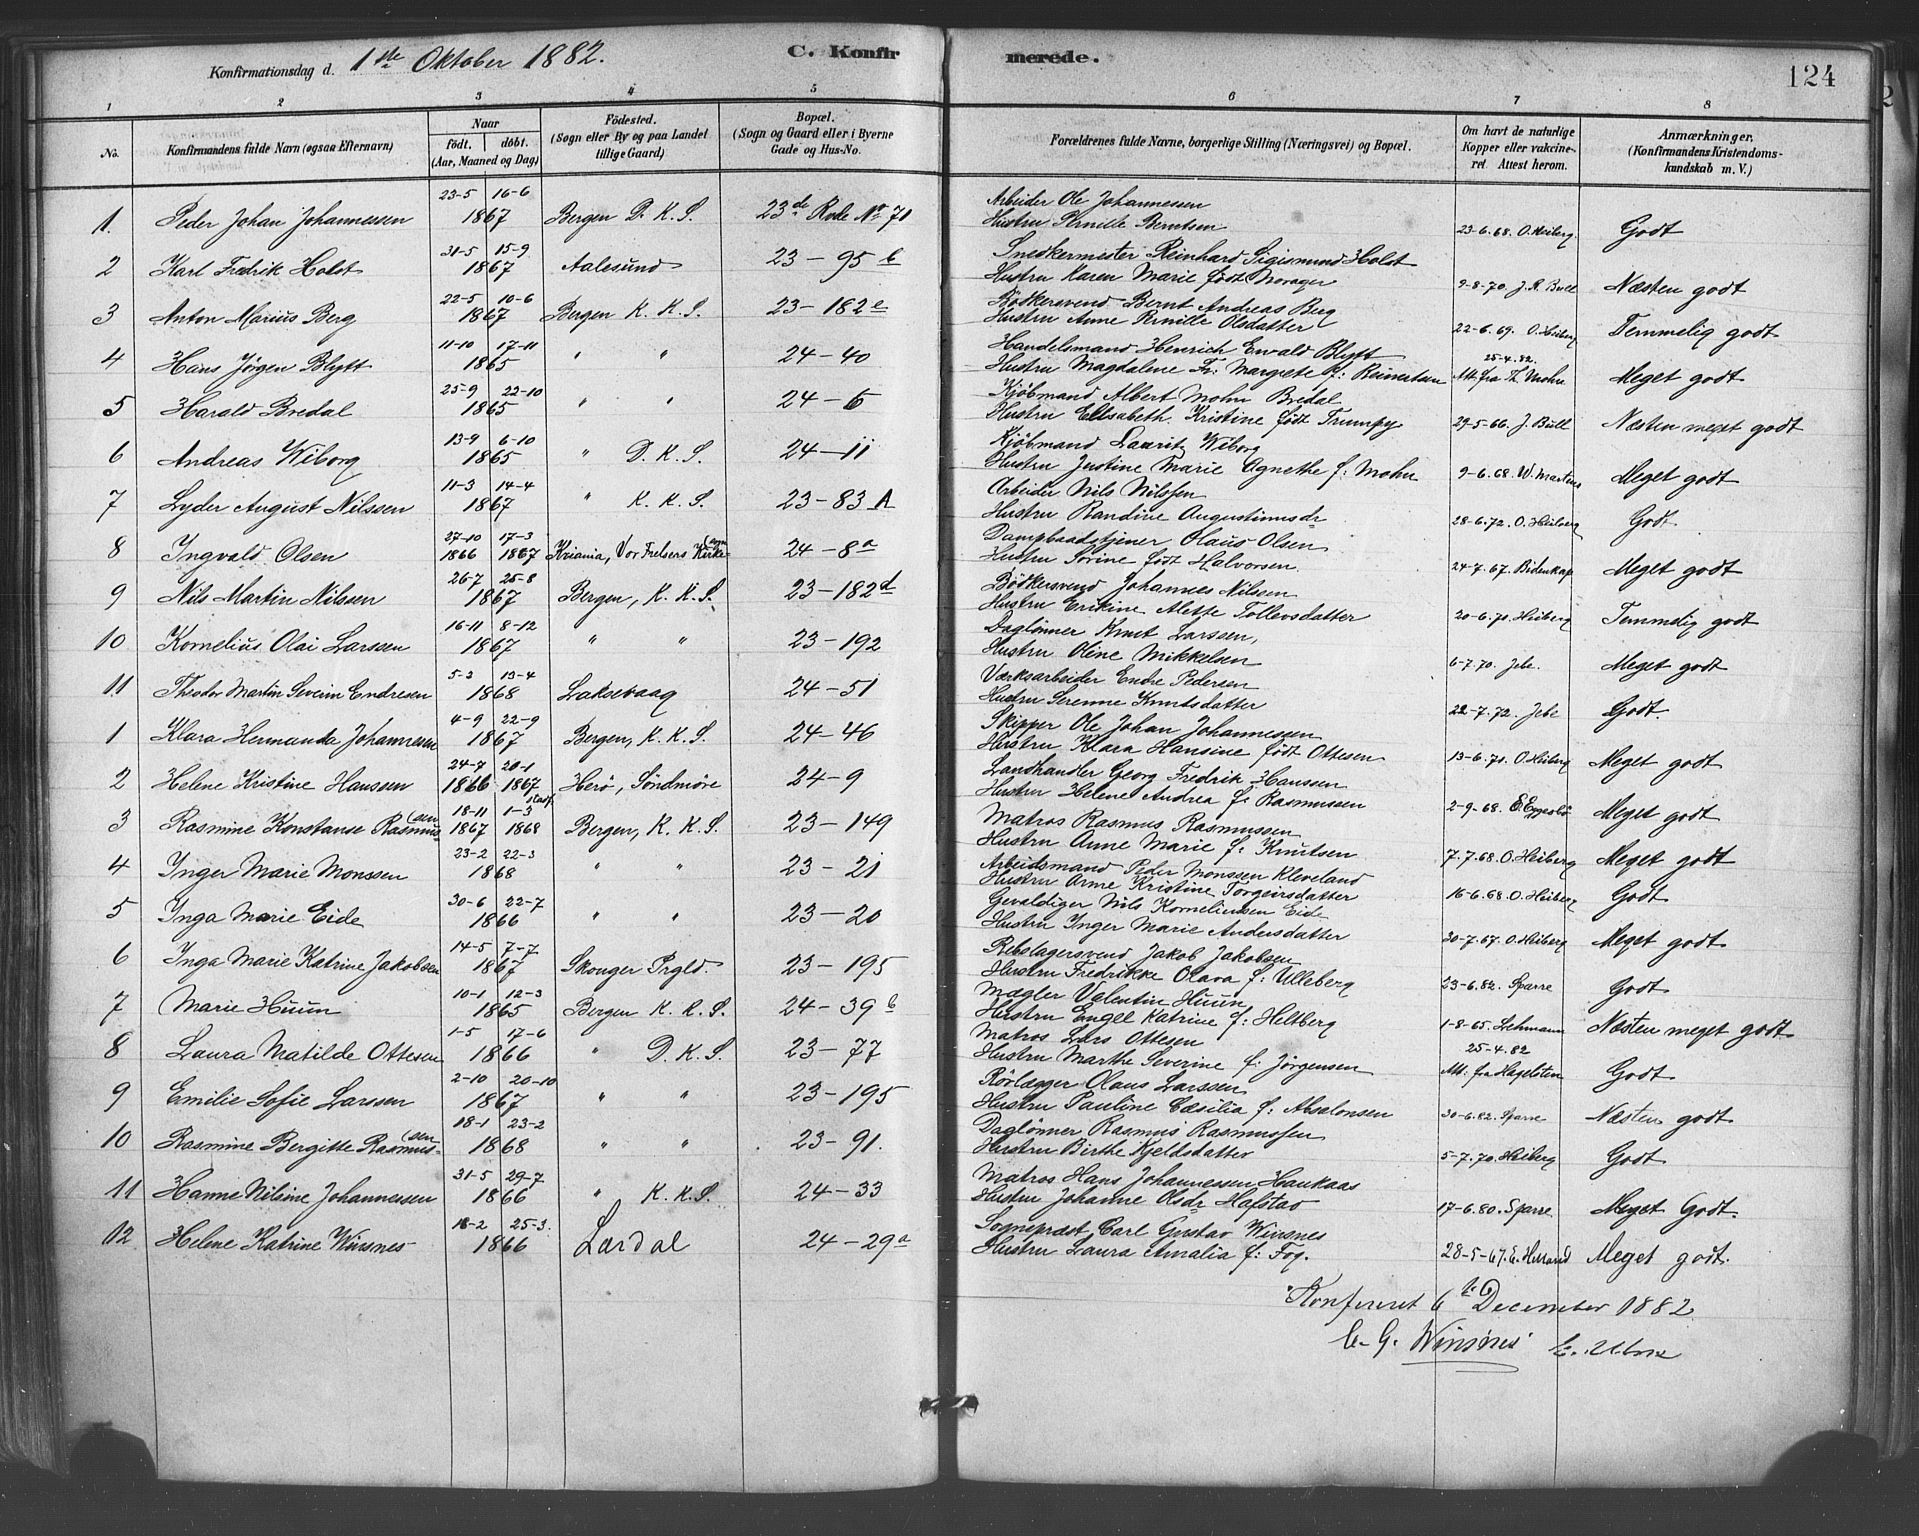 Konfirmationsdag d. 1ste Oktober 1882.
C. Konfirmerede.
124
1 2 3 4 5 6 7 8
No. Konfirmandens fulde Navn (ogsaa Efternavn) Naar født. døbt. (Aar, Maaned og Dag) Fødested. (Sogn eller By og paa Landet tillige Gaard) Bopæl. (Sogn og Gaard eller i Byerne Gade og Hus-No. Forældrenes fulde Navne, borgerlige Stilling (Næringsvei) og Bopæl. Om havt de naturlige Kopper eller vakcineret Attest herom. Anmærkninger, (Konfirmandens Kristendomskundskab m. V.)
1. Peder Johan Johannessen 23-5 16-6 1867 Bergen D. K. S. 23de Rode No 71 Arbeider Ole Johannessen Hustru Pernille Berntsen 23-6.68. O. Heiberg. Godt
2 Karl Fredrik Holst 31-5 15-9 1867 Aalesund 23-95 b Snedkermester Reinhard Sigismund Holst Hustru Karen Marie født Morager 9-8-70. J. R. Bull Næsten godt
3 Anton Marius Berg 22-5 10-6 1867 Bergen K. K. S. 23-182 e Bødkersvend Bernt Andreas Berg Hustru Anne Pernille Olsdatter 22-6.69. O. Heiberg Temmelig godt
4 Hans Jørgen Blytt 11-10 17-11 1865 " " 24-40 Handelsmand Henrich Ewald Blytt Hustru Magdalene Fr: Margrete f: Reinertsen 25-4.82. Att. fra Meget godt
5 Harald Bredal 25-9 22-10 1865 " " 24-6 Kjøbmand Albert Mohn Bredal Hustru Elisabeth Kristine født Trumpy 29-5-66. J. Bull Næsten meget godt
6 Andreas Wiborg 13-9 6-10 1865 " D. K. S. 24-11 Kjøbmand Lauritz Wiborg Hustru Justine Marie Agnethe f: Mohn 9-6.68. W. Martens Meget godt
7 Lyder August Nilssen 11-3 14-4 1867 " K. K. S. 23-83 A Arbeider Nils Nilssen Hustru Randine Augustinusdr 28-6.72. O. Heiberg Godt
8 Ingvald Olsen 27-10 1866 17-3 1867 Kriania, Vor Frelsers Kirke- (sogn 24-8a Dampbaadstjener Olaus Olsen Hustru Sorine født Halvorsen. 24-7.67. Bidenkap Meget godt
9 Nils Martin Nilssen 26-7 25-8 1867 Bergen, K. K. S. 23-182 d Bødkersvend Johannes Nilssen Hustru Erikine Alette Tollevsdatter 20-6.70. Heiberg Temmelig godt
10 Kornelius Olai Larssen 16-11 8-12 1867 " " 23-192 Daglønner Knut Larssen, Hustru Oline Mikkelsen 6-7.70. Jebe. Meget godt
11 Theodor Martin Severin Endresen 5-2 13-4 1868 Laksevaag 24-51 Værksarbeider Endre Pedersen Hustru Serenne Knutsdatter 22-7.72. Jebe Godt.
1 Klara Hermanda Johannessen 4-9 22-9 1867 Bergen, K. K. S. 24-46 Skipper Ole Johan Johannessen Hustru Klara Hansine født Ottesen 13-6.71. O. Heiberg Meget godt
2 Helene Kristine Hanssen 24-7 1866 20-1 1867 Herø, Söndmöre 24-9 Landhandler Georg Fredrik Hanssen Hustru Helene Andrea f: Rasmussen 2-9-68. E. Meget godt
3 Rasmine Konstanse Rasmus- (sen 18-11 1867 1-3 1868 Bergen, K. K. S. 23-149 Matros Rasmus Rasmussen Hustru Anne Marie f: Knutsen 7.7.68. O. Heiberg Meget godt
4 Inger Marie Monssen 23-2 22-3 1868 " " 23-21 Arbeidsmand Peder Monssen Kleveland Hustru Anne Kristine Torgeirsdatter 16-6.68. O. Heiberg Godt
5 Inga Marie Eide 30-6 22-7 1866 " " 23-20 Gevaldiger Nils Korneliussen Eide Hustru Inger Marie Andersdatter 30-7.67. O. Heiberg Meget godt
6 Inga Marie Katrine Jakobsen 14-5 7-7 1867 Skonger Prgld. 23-195 Rebslagersvend Jakob Jakobsen Hustru Fredrikke Olava f: Ulleberg 23-6.82. Sparre Godt
7 Marie Huun 10-1 12-3 1865 Bergen K. K. S. 24-39 b Mægler Valentin Huun Hustru Engel Katrine f: Heltberg 1-8-65. Lehmann Næsten meget godt
8 Laura Matilde Ottesen 1-5 17-6 1866 " D. K. S. 23-77 Matros Lars Ottesen Hustru Marthe Severine f: Jörgensen 25-4.82 Att. fra Hagelsten Godt
9 Emilie Sofie Larssen 2-10 20-10 1867 " " 23-195 Rørlægger Olaus Larssen Hustru Pauline Cæsilia f: Absalonsen 30-6.82. Sparre Næsten godt
10 Rasmine Bergitte Rasmus- (sen 18-1 23-2 1868 " " 23-91. Daglønner Rasmus Rasmussen Hustru Birthe Kjeldsdatter 5-7.70. Heiberg Godt
11 Hanne Nilsine Johannessen 31-5 29-7 1866 " K. K. S. 24-33 Matros Hans Johannessen Haukaas Hustru Johanne Olsdr Hafstad 17-6.80. Sparre Meget Godt.
12 Helene Katrine Winsnes 18-2 25-3. 1866 Lærdal 24-29a Sogneprest Carl Gustav Winsnes Hustru Laura Amalia f: Foy. 28-5-67. Meget godt.
Konfereret 6te December 1882
C. G. Winsnes